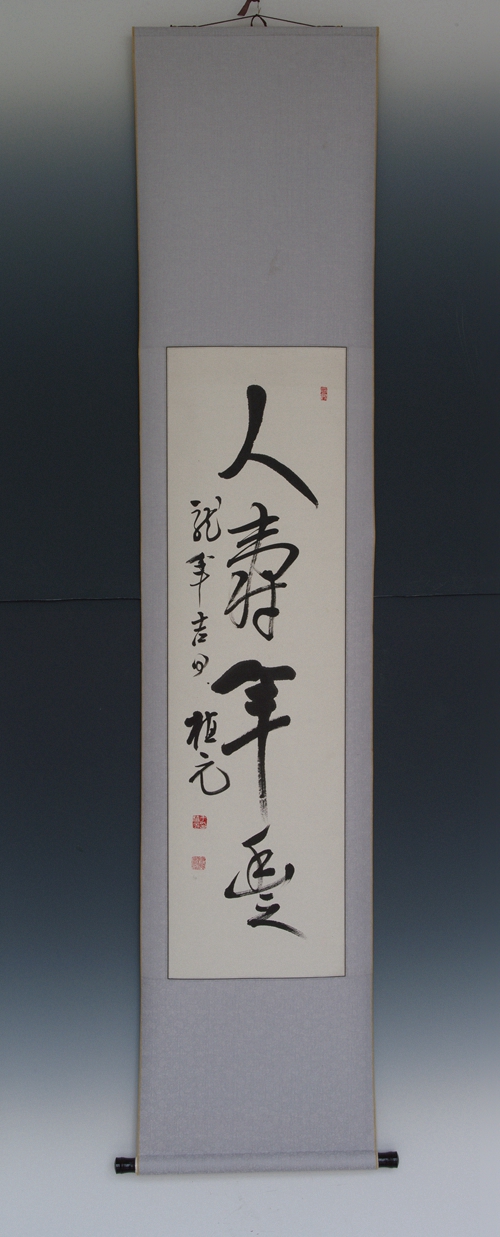 人壽年豐
龍年吉日 植元